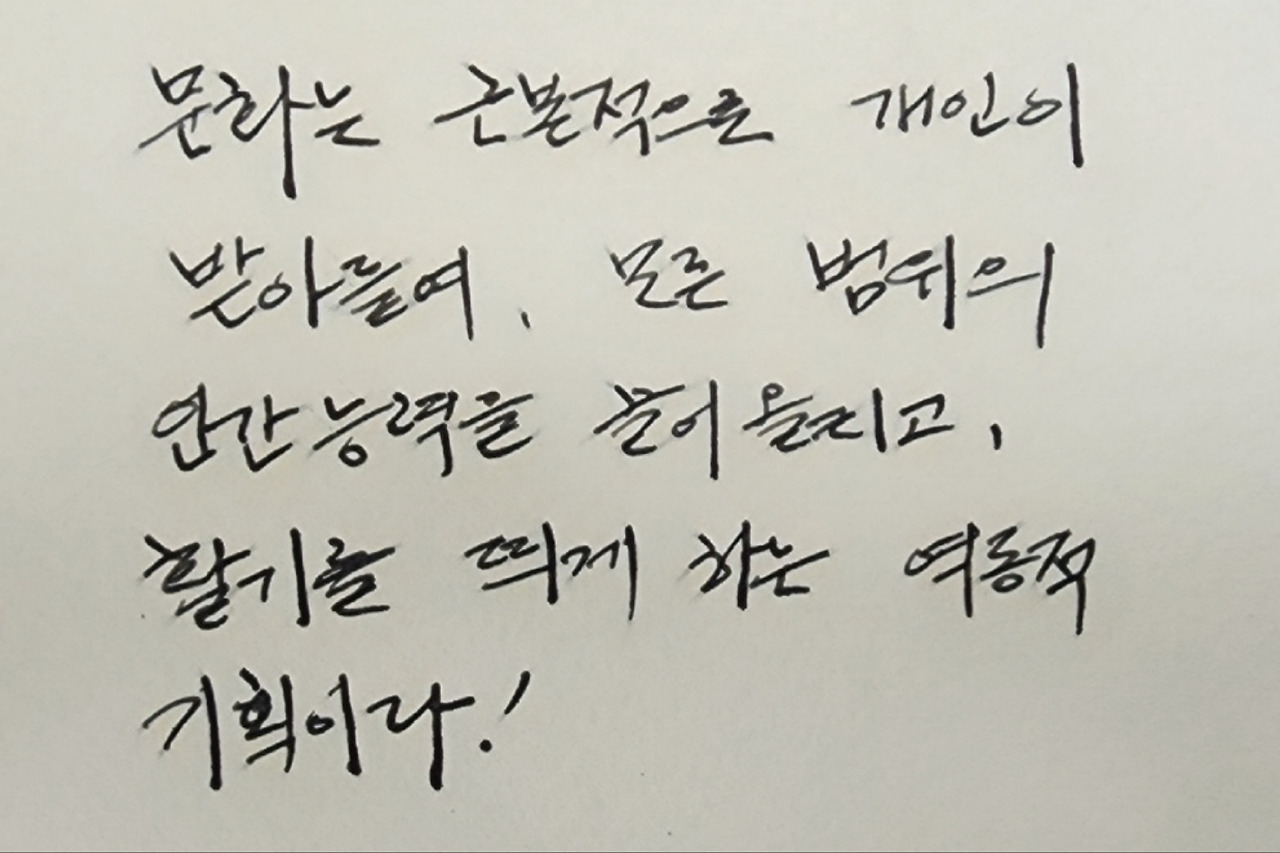 문화는 근본적으로 개인이
받아들여, 모든 범위의
인간 능력을 끌어 올리고,
활기를 띄게 하는 역동적
기획이다!